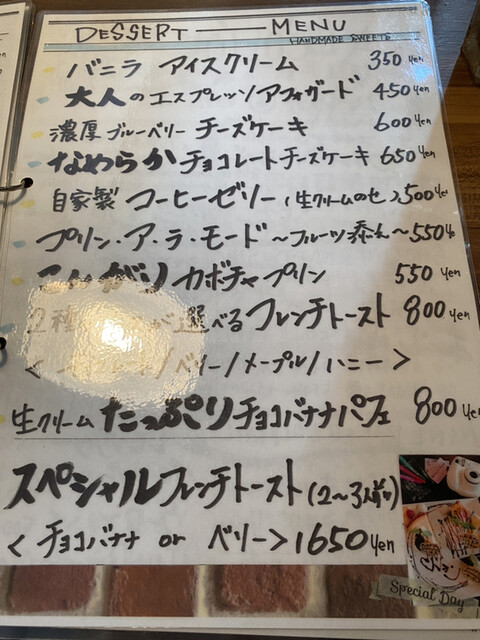 DESSERT MENU
HANDMADE SWEETS
バニラ アイスクリーム 350 yen
大人のエスプレッソアフォガード 450 yen
濃厚ブルーベリー チーズケーキ 600 yen
なめらかチョコレートチーズケーキ 650 yen
自家製 コーヒーゼリー (生クリームのせ) 500 ye
プリン・ア・ラ・モード ～フルーツ添え～ 550 ye
カボチャプリン 550 yen
2種 が選べるフレンチトースト 800 yen
< /ベリー/メープル/ハニー>
生クリームたっぷりチョコバナナパフェ 800 yen
スペシャルフレンチトースト(2～3人前)
<チョコバナナ or ベリー> 1650 yen
Special Day